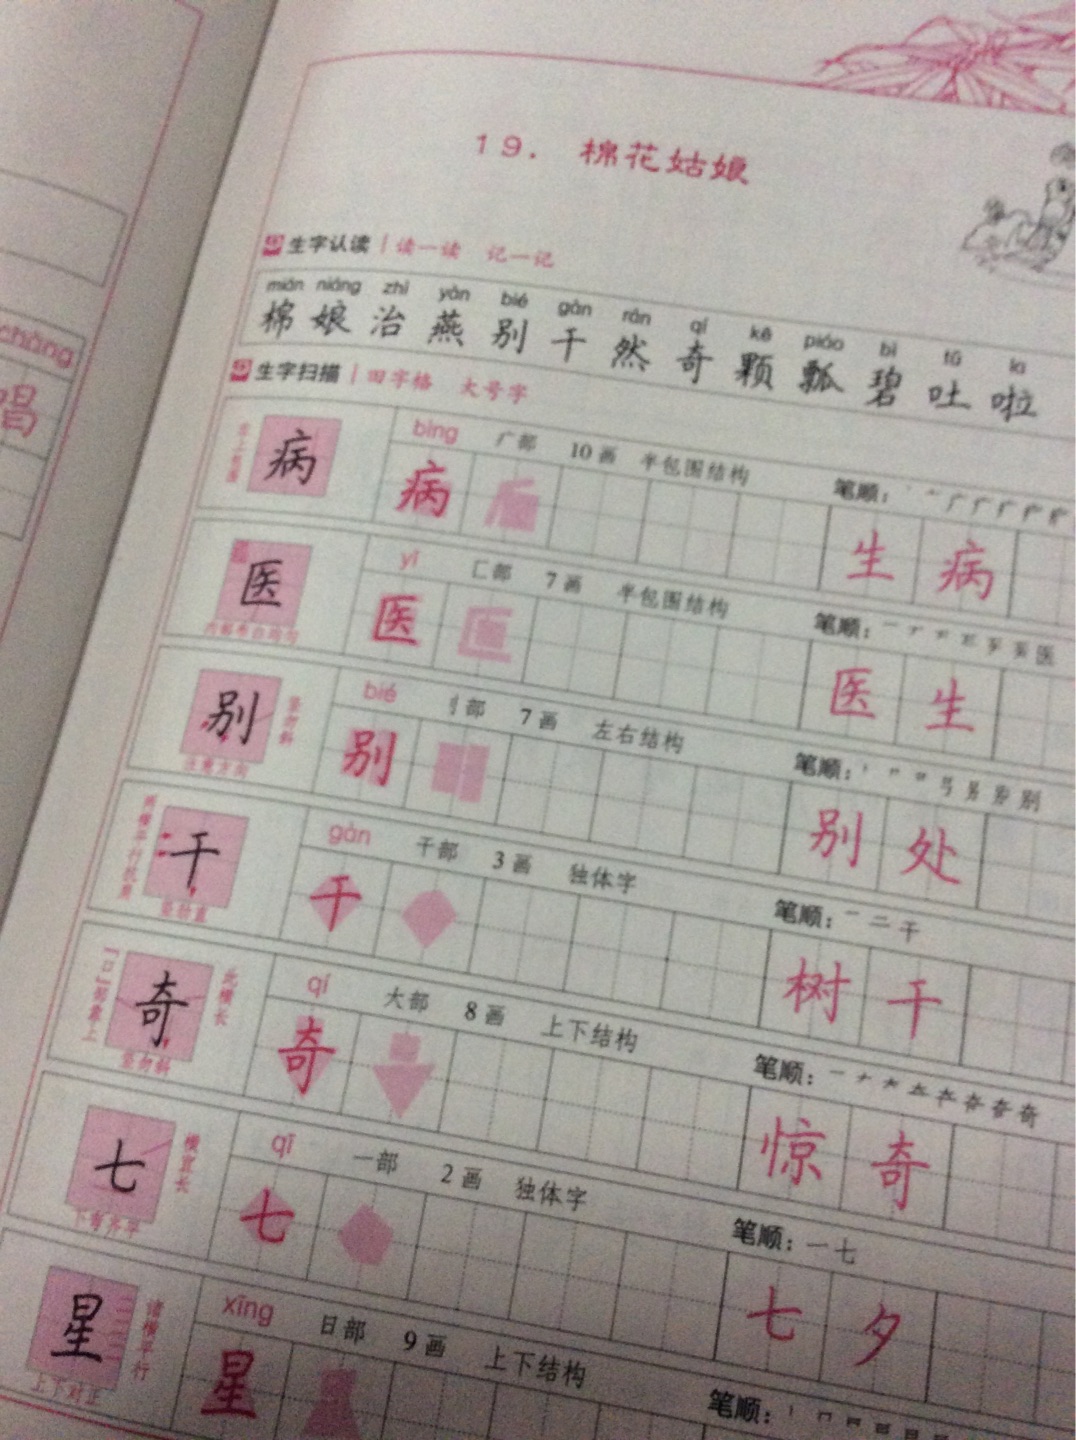 19. 棉花姑娘
生字认读 读一读 记一记
mián niáng zhì yàn bié gàn rán qí kē piáo bì tǔ la
棉 娘 治 燕 别 干 然 奇 颗 瓢 碧 吐 啦
chàng
唱
生字扫描 田字格 大号字
病
bìng 疒部 10画 半包围结构 笔顺:
病 生病
医
内部布白均匀
yī 匚部 7画 半包围结构 笔顺:
医 医生
别
竖勿斜
注意方向
bié 刂部 7画 左右结构 笔顺:
别 别处
干
竖勿直
gàn 干部 3画 独体字 笔顺: 一 二 干
干 树干
奇
此横长
竖勿斜
qí 大部 8画 上下结构 笔顺:
奇 惊奇
七
横宜长
下看齐平
qī 一部 2画 独体字 笔顺: 一 七
七 七夕
星
诸横平行
上下对正
xīng 日部 9画 上下结构 笔顺:
星